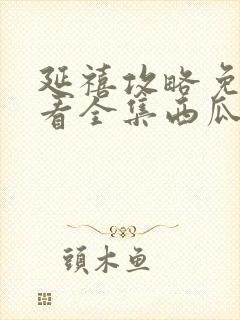 延禧攻略免
看全集西瓜
頭木鱼